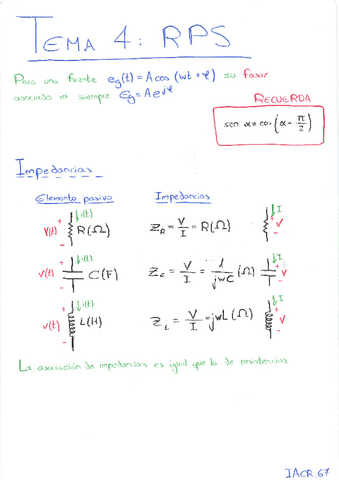 TEMA 4: RPS
Para una fuente eg(t) = A cos (wt + φ) su fasor
asociado es siempre Eg = A e^jφ
RECUERDA
sen α = cos (α - π/2)
Impedancias
Elemento pasivo Impedancias
i(t) I
V(t) + - R(Ω) Z_R = V/I = R(Ω) + V -
i(t) I
V(t) + - C(F) Z_C = V/I = 1/jwC (Ω) + V -
i(t) I
V(t) + - L(H) Z_L = V/I = jwL (Ω) + V -
La asociación de impedancias es igual que la de resistencias
IACR.67